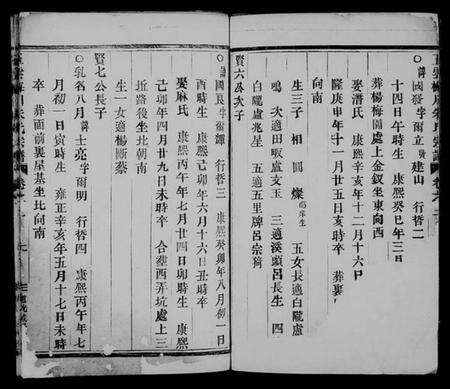 諱國發字爾立號建山 行哲二
十四日午時生 康熙癸巳年三日
葬楊梅園處上金釵坐東向西
娶潛氏 康熙辛亥年十二月十六日
隆庚申年十一月廿五日亥時卒 葬裏
向南
生三子 相 圓 燦 五女長適白隴盧
鳴 次適田畈盧文玉 三適溪頭呂長生 四
白隴盧兆星 五適五里牌呂宗筠
賢六公次子
諱國良字爾鐔 行哲三 康熙癸卯年八月初一日
酉時生 康熙己卯年六月十六日丑時卒
娶麻氏 康熙丙午年七月廿四日卯時生 康熙
己卯年四月廿九日未時卒 合葬西弄坑處上三
近路後坐北朝南
生一女適楊斷蔡
賢七公長子
乳名八月 諱士亮字爾明 行哲四 康熙丙午年七
月初一日寅時生 雍正辛亥年五月十七日未時
卒 葬面前裏屋基坐北向南